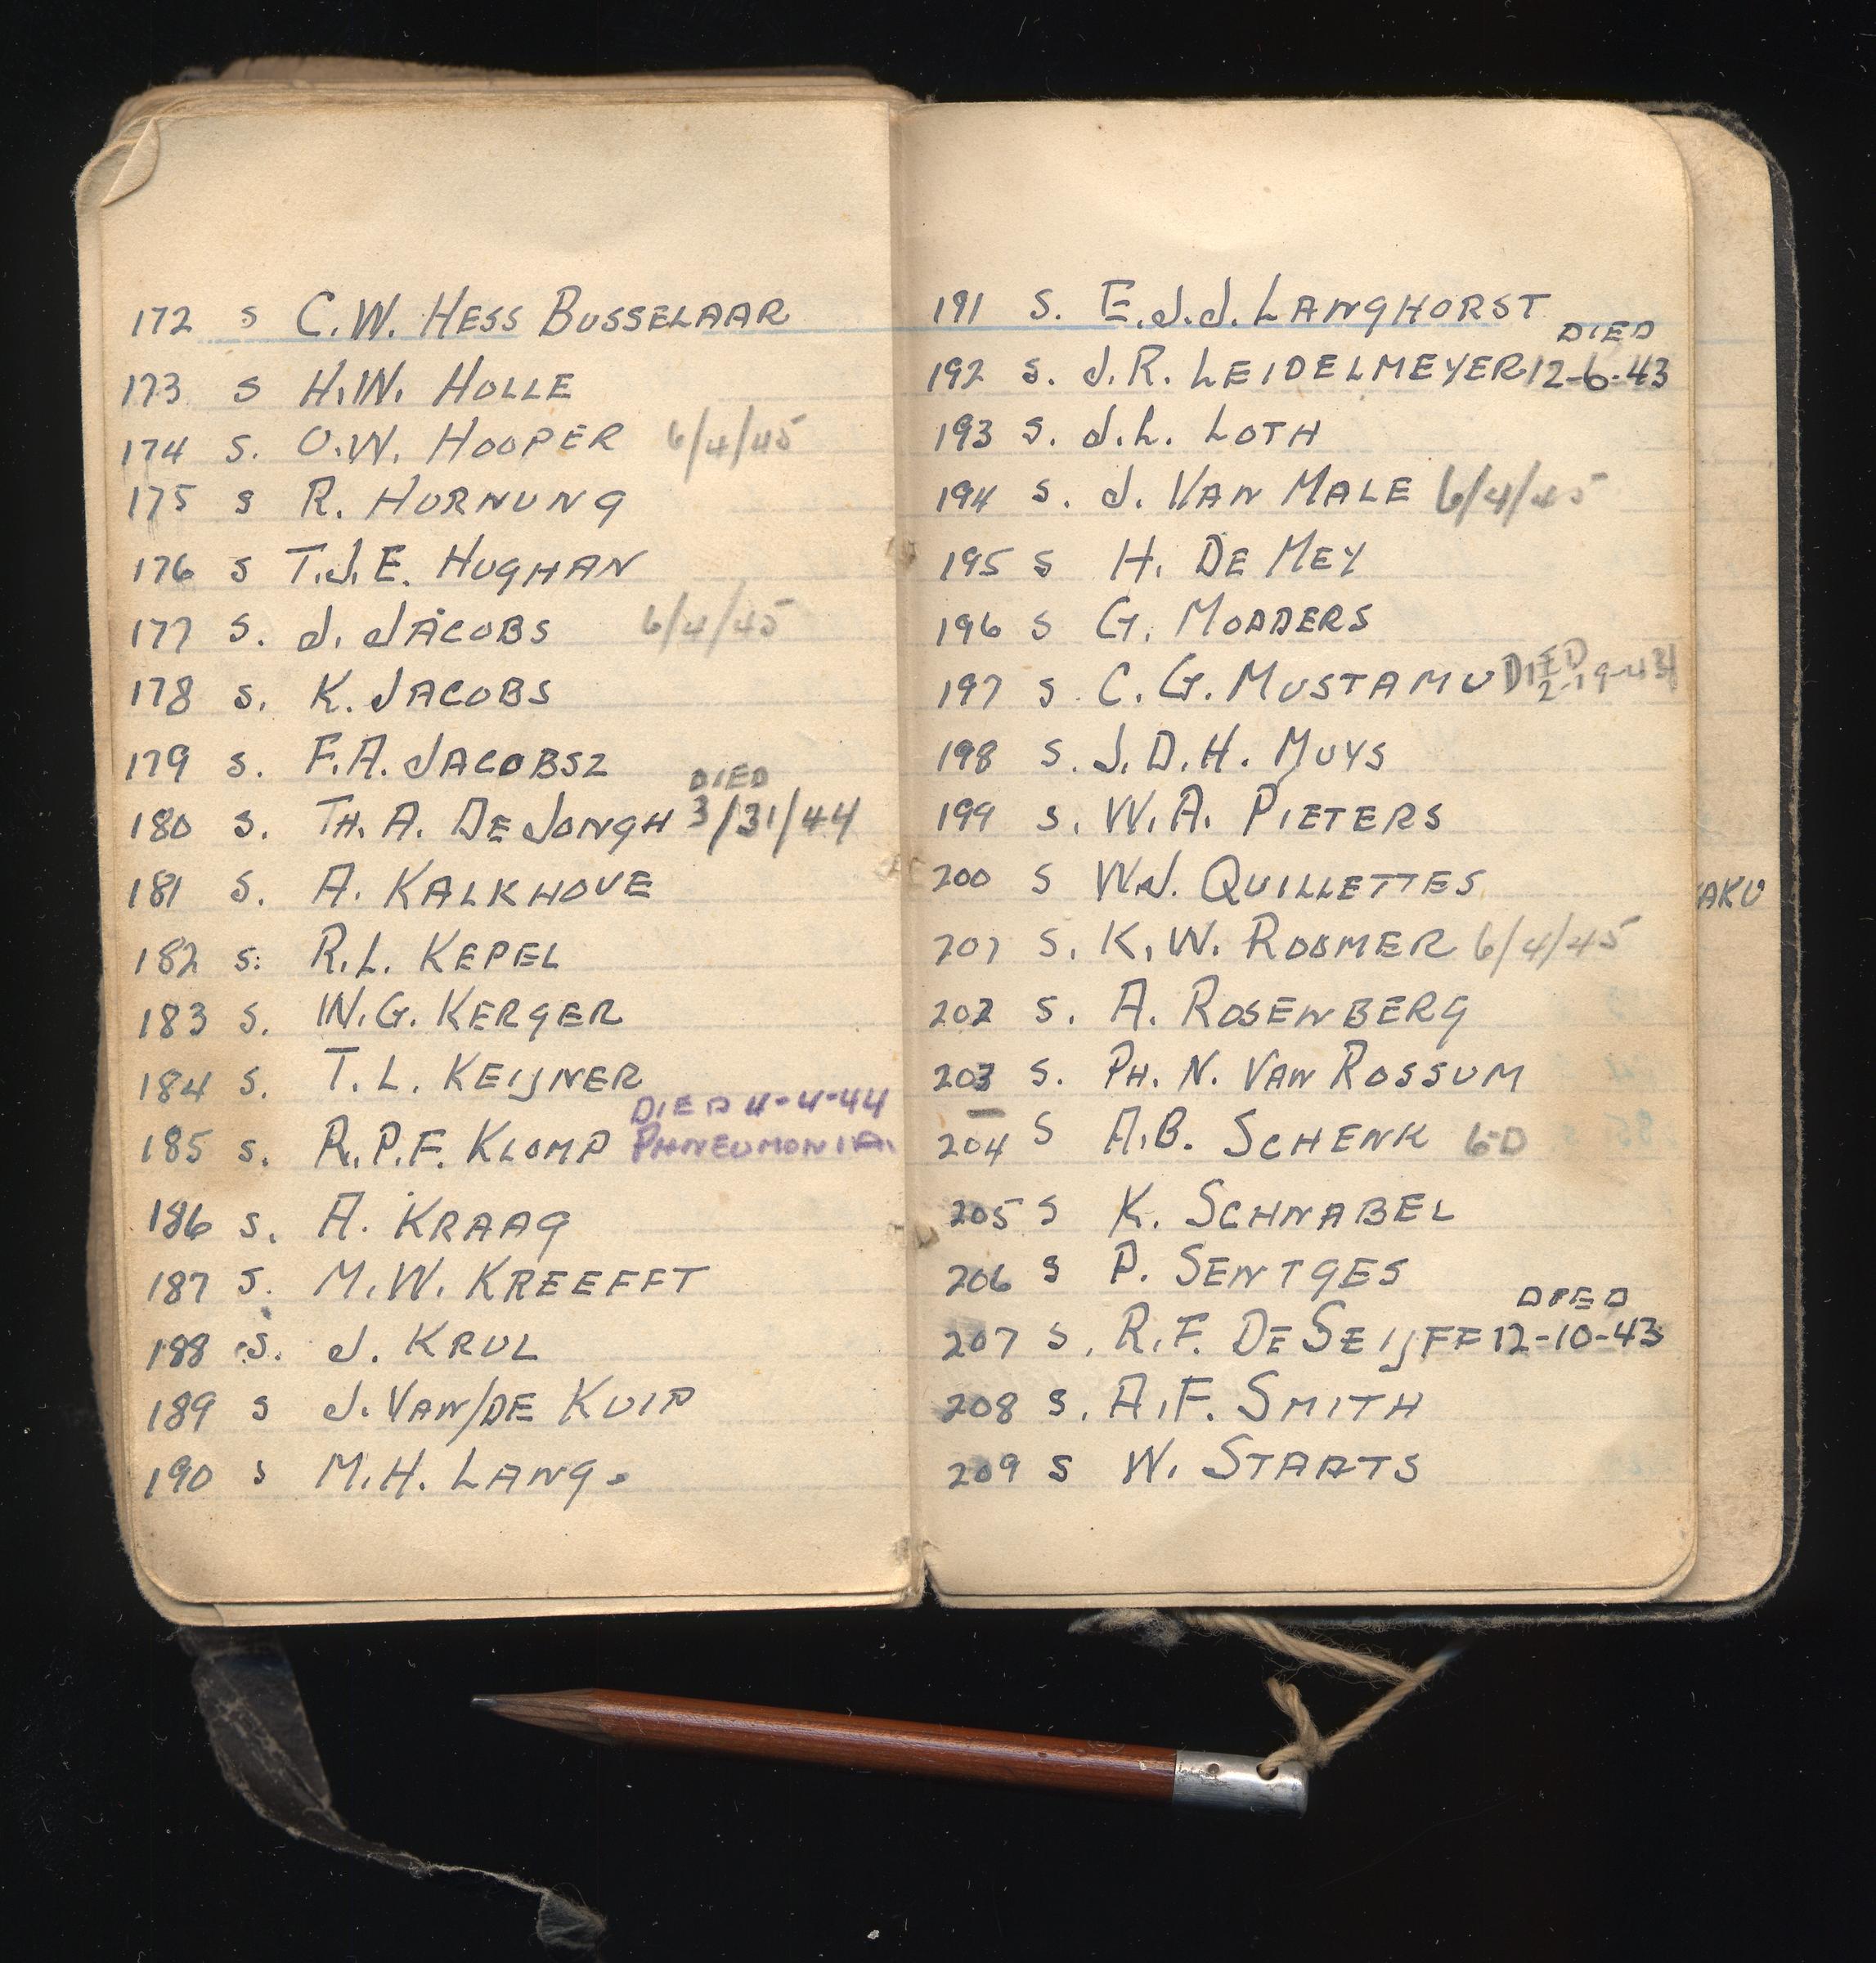 172 S C.W. HESS BUSSELAAR
173 S H.W. HOLLE
174 S. O.W. HOOPER 6/4/45
175 S R. HORNUNG
176 S T.J.E. HUGHAN
177 S. J. JACOBS 6/4/45
178 S. K. JACOBS
179 S. F.A. JACOBSZ
180 S. TH. A. DE JONGH DIED 3/31/44
181 S. A. KALKHOVE
182 S. R.L. KEPEL
183 S. W.G. KERGER
184 S. T.L. KEIJNER
185 S. R.P.F. KLOMP DIED 4-4-44
PHNEUMONIA.
186 S. A. KRAAG
187 S. M.W. KREEFFT
188 S. J. KRUL
189 S J. VAN/DE KUIP
190 S M.H. LANG.
191 S. E.J.J. LANGHORST
192 S. J.R. LEIDELMEYER DIED 12-6-43
193 S. J.L. LOTH
194 S. J. VAN MALE 6/4/45
195 S H. DE MEY
196 S G. MODDERS
197 S. C.G. MUSTAMU DIED
198 S. J.D.H. MUYS
199 S. W.A. PIETERS
200 S W.J. QUILLETTES
201 S. K.W. ROOMER 6/4/45
202 S. A. ROSENBERG
203 S. PH. N. VAN ROSSUM
204 S A.B. SCHENK
205 S K. SCHNABEL
206 S P. SENTGES
207 S. R.F. DE SEIJFF DIED 12-10-43
208 S. A.F. SMITH
209 S W. STAATS
AKU